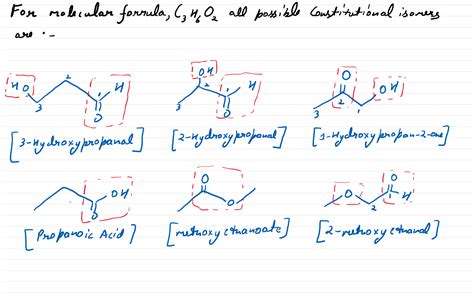 For molecular formula, C3H6O2 all possible constitutional isomers
are :-
HO 3 2 1 H O
OH 3 2 1 H O
O 3 2 1 OH
[3-Hydroxypropanal] [2-Hydroxypropanal] [1-Hydroxypropan-2-one]
OH O
O O
O 2 1 O H
[Propanoic Acid] [methoxy ethanoate] [2-methoxy ethanal]